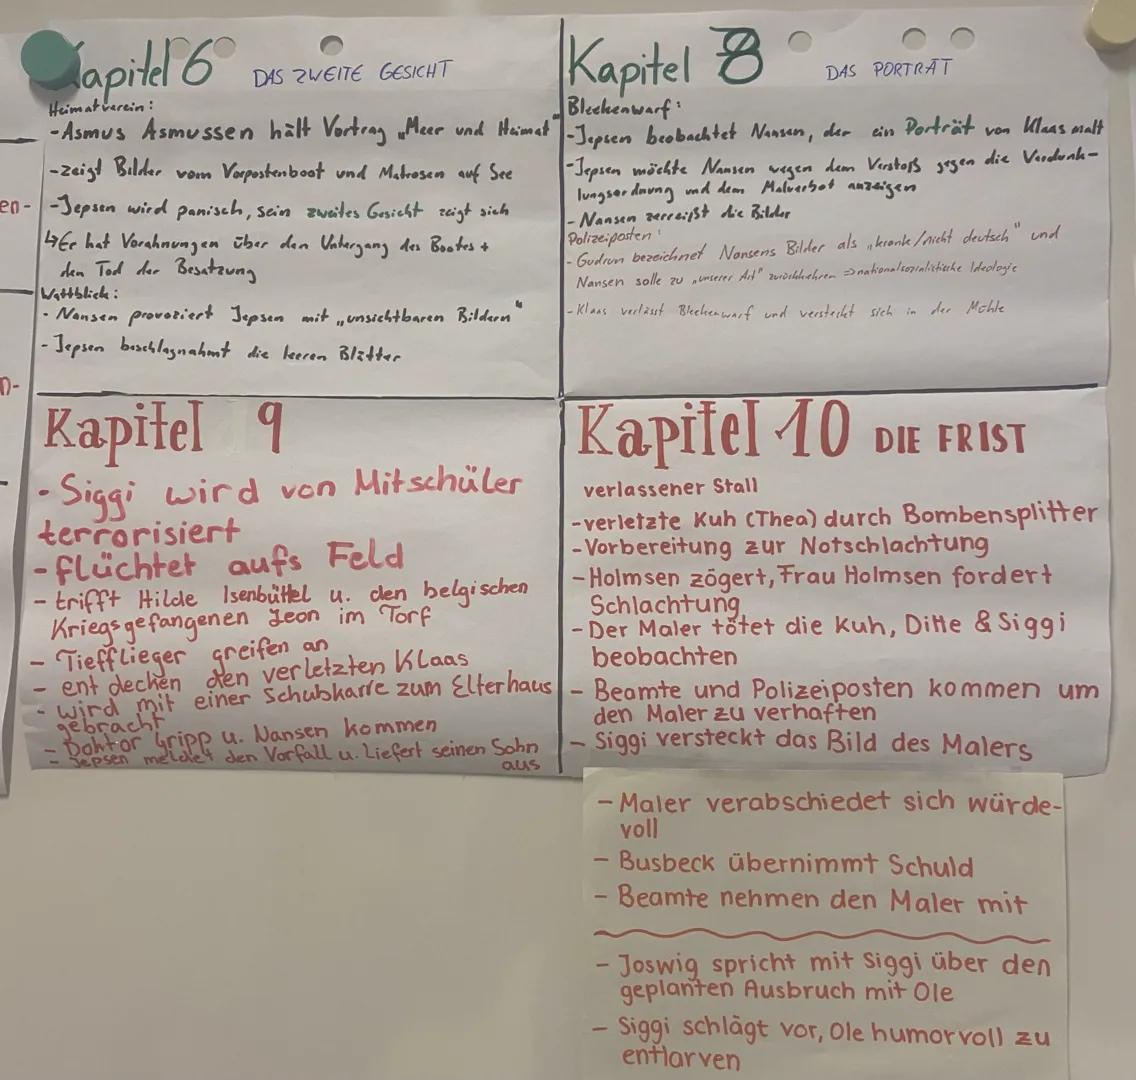 Kapitel 6 DAS ZWEITE GESICHT
Heimatverein:
-Asmus Asmussen hält Vortrag „Meer und Heimat"
-zeigt Bilder vom Vorpostenboot und Matrosen auf See
-Jepsen wird panisch, sein zweites Gesicht zeigt sich
↳Er hat Vorahnungen über den Untergang des Bootes +
den Tod der Besatzung
Wattblick:
- Nansen provoziert Jepsen mit „unsichtbaren Bildern"
- Jepsen beschlagnahmt die leeren Blätter
Kapitel 8 DAS PORTRÄT
Bleekenwarf:
-Jepsen beobachtet Nansen, der ein Porträt von Klaas malt
-Jepsen möchte Nansen wegen dem Verstoß gegen die Verdunk-
lungsordnung und dem Malverbot anzeigen
- Nansen zerreißt die Bilder
Polizeiposten:
- Gudrun bezeichnet Nansens Bilder als „krank/nicht deutsch" und
Nansen solle zu „unserer Art" zurückkehren => nationalsozialistische Ideologie
-Klaas verlässt Bleekenwarf und versteckt sich in der Mühle
Kapitel 9
- Siggi wird von Mitschüler
terrorisiert
- flüchtet aufs Feld
- trifft Hilde Isenbüttel u. den belgischen
Kriegsgefangenen Leon im Torf
- Tiefflieger greifen an
- entdecken den verletzten Klaas
- wird mit einer Schubkarre zum Elterhaus
gebracht
- Doktor Gripp u. Nansen kommen
- Jepsen meldet den Vorfall u. Liefert seinen Sohn
aus
Kapitel 10 DIE FRIST
verlassener Stall
-verletzte Kuh (Thea) durch Bombensplitter
-Vorbereitung zur Notschlachtung
-Holmsen zögert, Frau Holmsen fordert
Schlachtung
-Der Maler tötet die Kuh, Ditte & Siggi
beobachten
- Beamte und Polizeiposten kommen um
den Maler zu verhaften
- Siggi versteckt das Bild des Malers
- Maler verabschiedet sich würde-
voll
- Busbeck übernimmt Schuld
- Beamte nehmen den Maler mit
- Joswig spricht mit Siggi über den
geplanten Ausbruch mit Ole
- Siggi schlägt vor, Ole humorvoll zu
entlarven
en-
n-